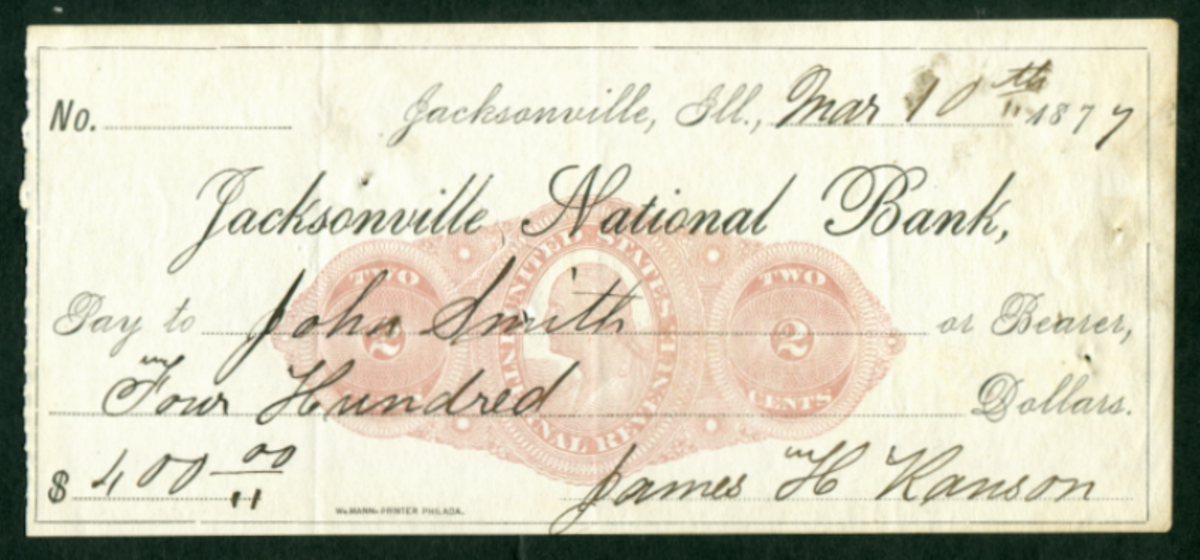 No. Jacksonville, Ill., Mar 10th 1877
Jacksonville National Bank,
UNITED STATES INTERNAL REVENUE
TWO 2 CENTS
TWO 2 CENTS
Pay to John Smith or Bearer,
Four Hundred Dollars.
$ 400 00
James H
Wm. MANN, PRINTER PHILADA.